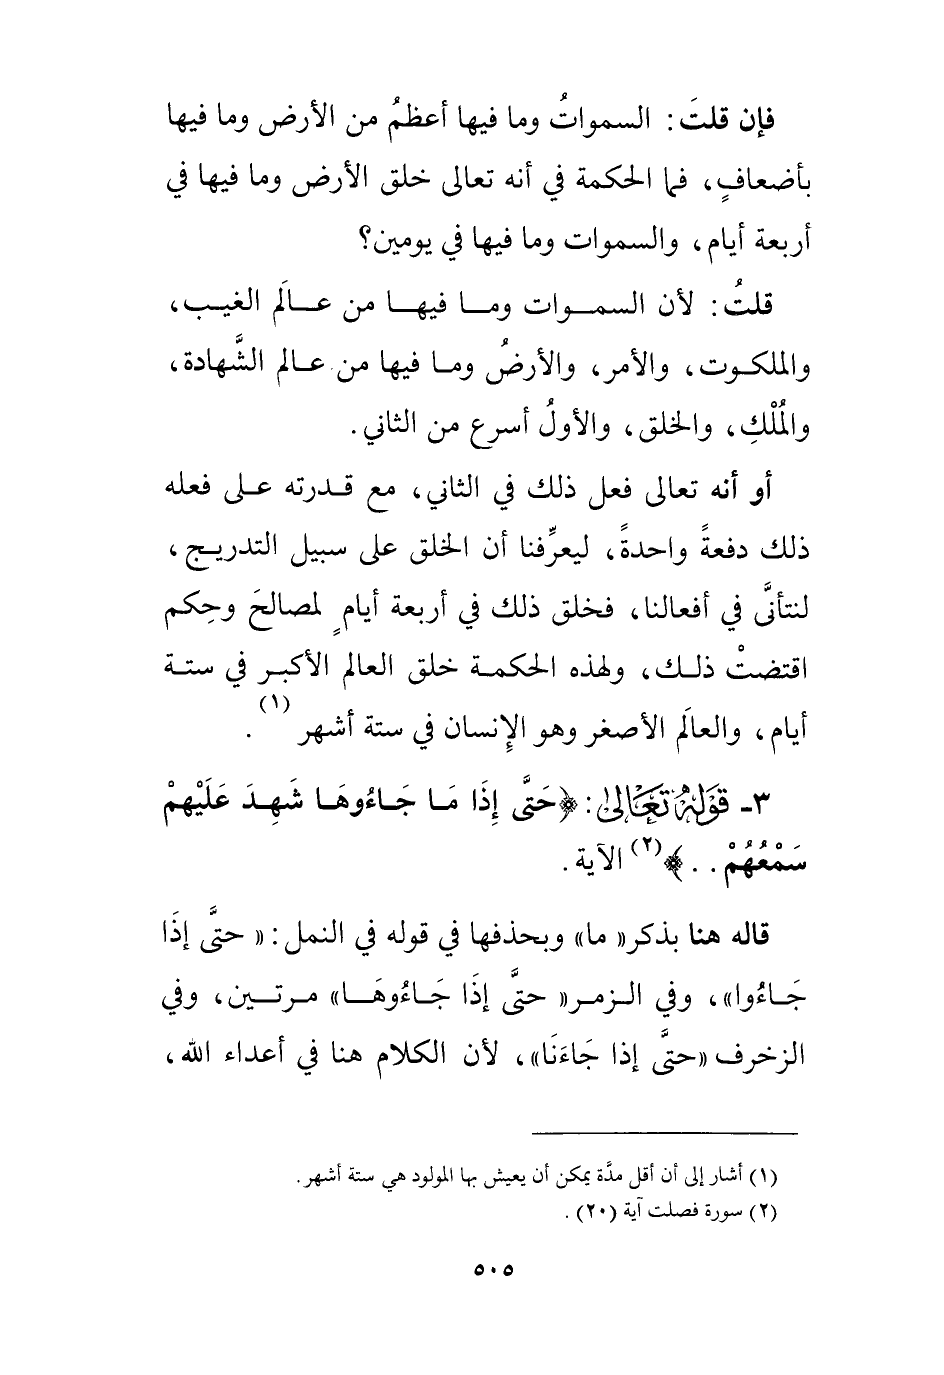 فإن قلتَ: السمواتُ وما فيها أعظمُ من الأرض وما فيها
بأضعافٍ، فما الحكمة في أنه تعالى خلق الأرض وما فيها في
أربعة أيام، والسموات وما فيها في يومين؟
قلتُ: لأن السموات وما فيها من عالَم الغيب،
والملكوت، والأمر، والأرضُ وما فيها من عالم الشَّهادة،
والمُلْكِ، والخلق، والأولُ أسرع من الثاني.
أو أنه تعالى فعل ذلك في الثاني، مع قدرته على فعله
ذلك دفعةً واحدةً، ليعرِّفنا أن الخلق على سبيل التدريج،
لنتأنَّى في أفعالنا، فخلق ذلك في أربعة أيامٍ لمصالحَ وحِكم
اقتضتْ ذلك، ولهذه الحكمة خلق العالم الأكبر في ستة
أيام، والعالَم الأصغر وهو الإنسان في ستة أشهر (١).
٣- قَوْلُهُ تَعَالَى: ﴿حَتَّى إِذَا مَا جَاءُوهَا شَهِدَ عَلَيْهِمْ
سَمْعُهُمْ . . ﴾(٢) الآية.
قاله هنا بذكر «ما» وبحذفها في قوله في النمل: «حتَّى إذَا
جَاءُوا»، وفي الزمر «حتَّى إذَا جَاءُوهَا» مرتين، وفي
الزخرف «حتَّى إذا جَاءَنَا»، لأن الكلام هنا في أعداء الله،
(١) أشار إلى أن أقل مدَّة يمكن أن يعيش بها المولود هي ستة أشهر.
(٢) سورة فصلت آية (٢٠).
٥٠٥